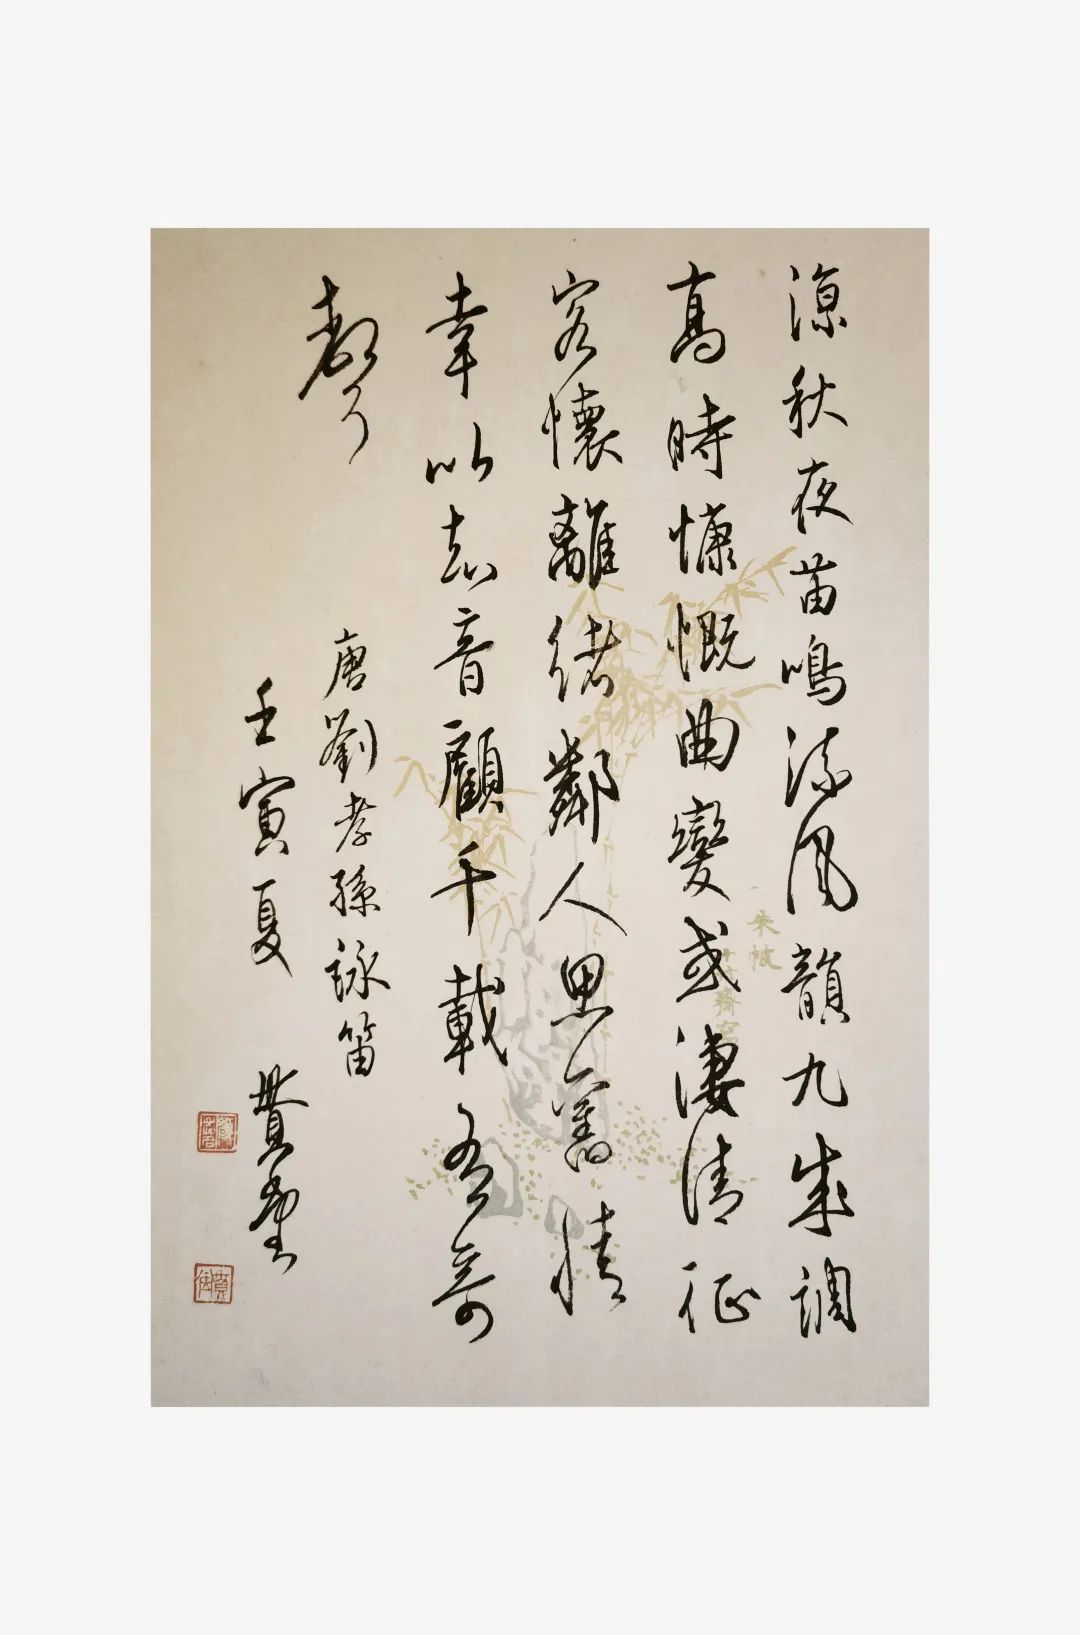 涼秋夜笛鳴流風韻九成調
高時慷慨曲變或淒清征
客懷離緒鄰人思舊情
幸以知音顧千載有奇
聲
唐劉孝孫詠笛
壬寅夏